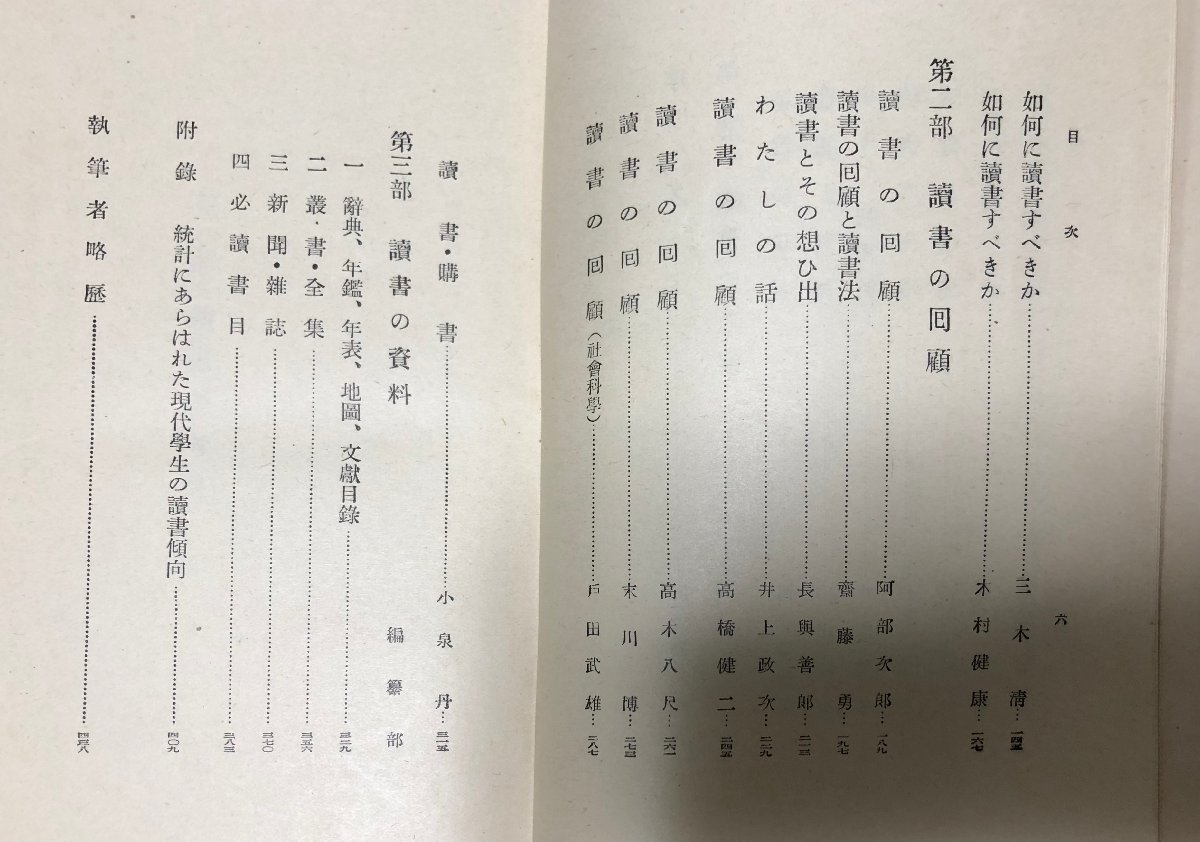 目次
六
如何に讀書すべきか……三木清…一四五
如何に讀書すべきか……木村健康…一六七
第二部 讀書の回顧
讀書の回顧……阿部次郎…一八九
讀書の回顧と讀書法……齋藤勇…一九七
讀書とその想ひ出……長與善郎…二一三
わたしの話……井上政次…二二九
讀書の回顧……高橋健二…二四五
讀書の回顧……高木八尺…二六一
讀書の回顧……末川博…二七三
讀書の回顧(社會科學)……戸田武雄…二八七
讀書・購書……小泉丹…三一五
第三部 讀書の資料 編纂部
一 辭典、年鑑、年表、地圖、文獻目錄……三二九
二 叢書・全集……三五六
三 新聞・雜誌……三七〇
四 必讀書目……三八三
附錄 統計にあらはれた現代學生の讀書傾向……四〇九
執筆者略歷……四三八